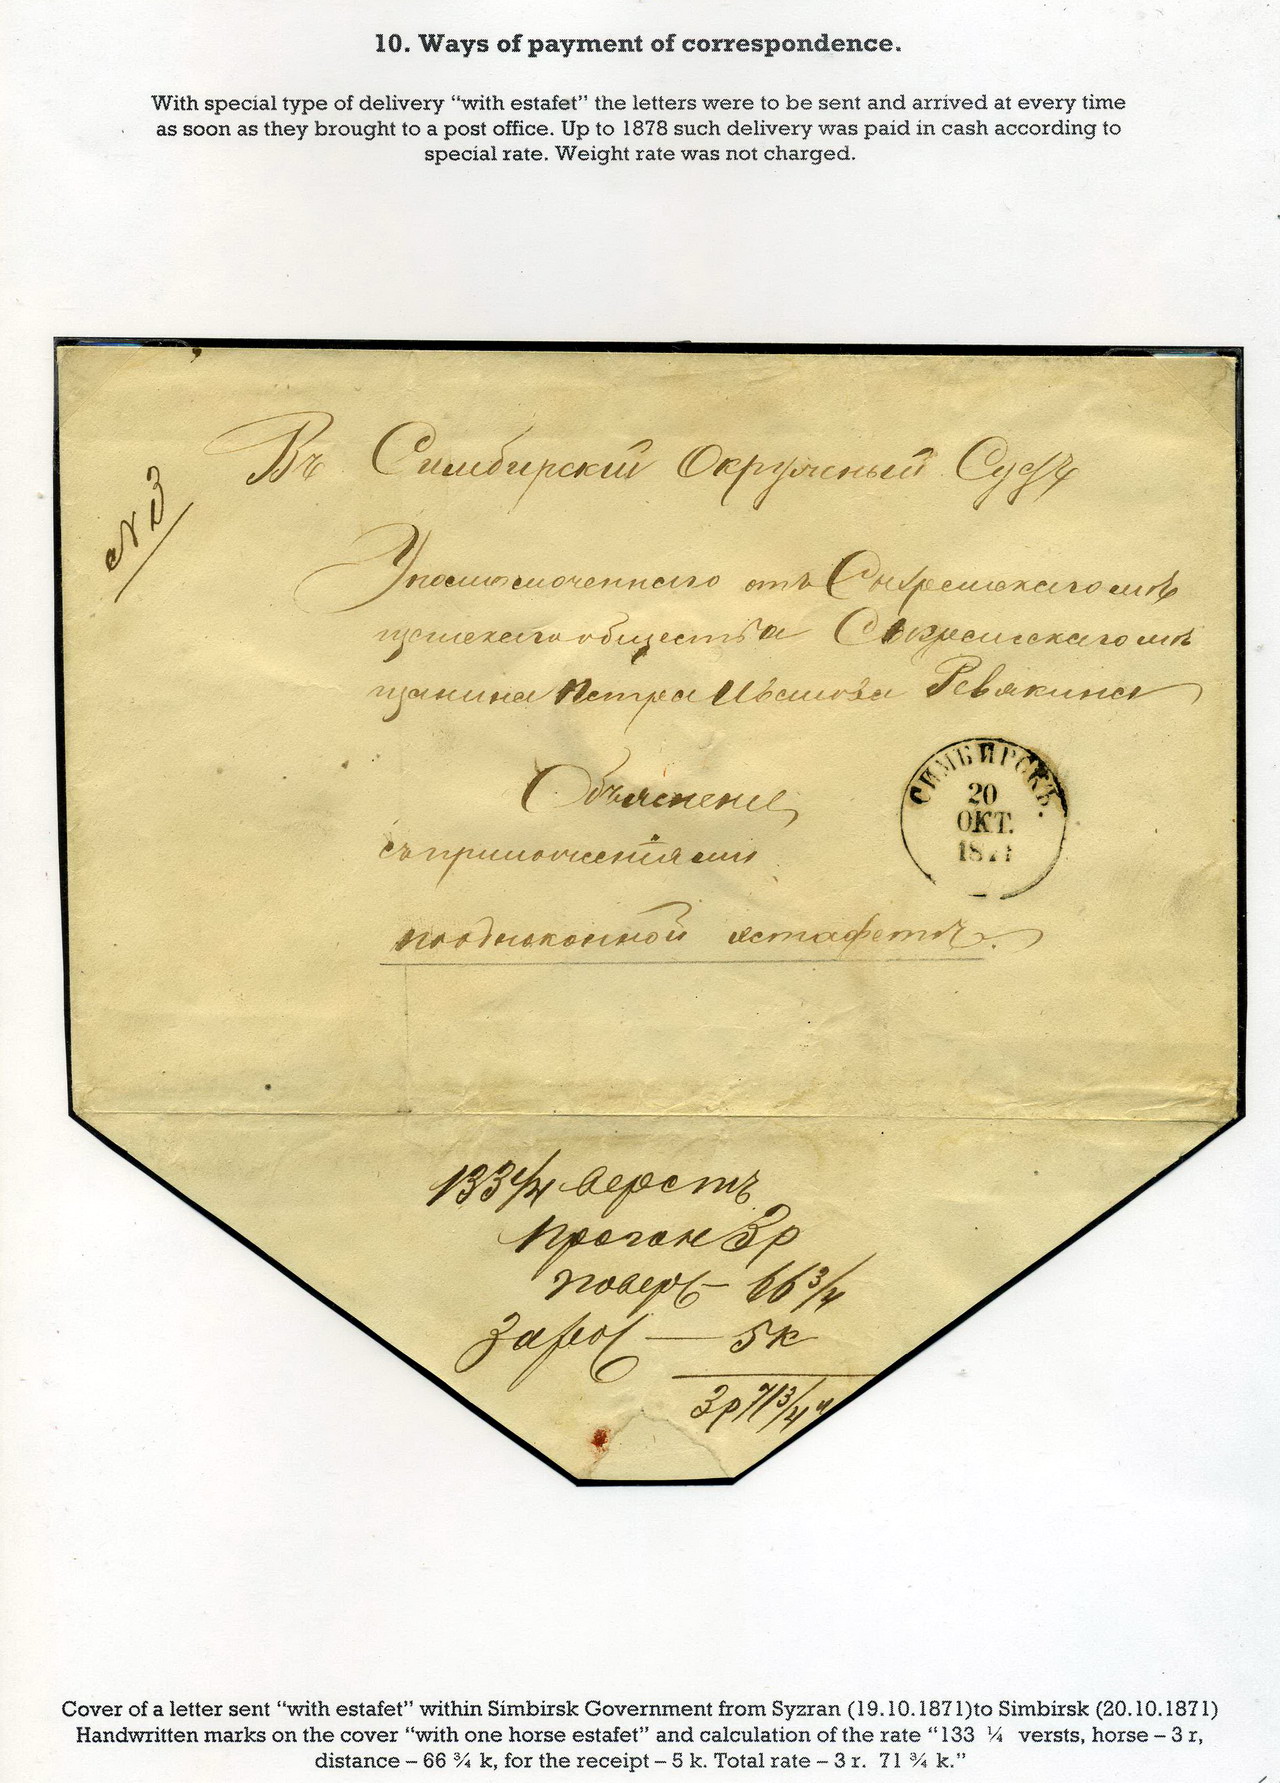 10. Ways of payment of correspondence.
With special type of delivery “with estafet” the letters were to be sent and arrived at every time
as soon as they brought to a post office. Up to 1878 such delivery was paid in cash according to
special rate. Weight rate was not charged.
N 13
Въ Симбирскій Окружный Судъ
Уполномоченнаго отъ мѣ
щанскаго общества мѣ
щанина Петра Иванова Ревякина
Объясненіе
съ приложеніями
по одноконной эстафетѣ.
СИМБИРСКЪ.
20
ОКТ.
1871
133 1/4 верстъ
прогон 3р
66 3/4
5к
3р 71 3/4 "
Cover of a letter sent “with estafet” within Simbirsk Government from Syzran (19.10.1871)to Simbirsk (20.10.1871)
Handwritten marks on the cover “with one horse estafet” and calculation of the rate “133 ¼ versts, horse – 3 r,
distance – 66 ¾ k, for the receipt – 5 k. Total rate – 3 r. 71 ¾ k.”